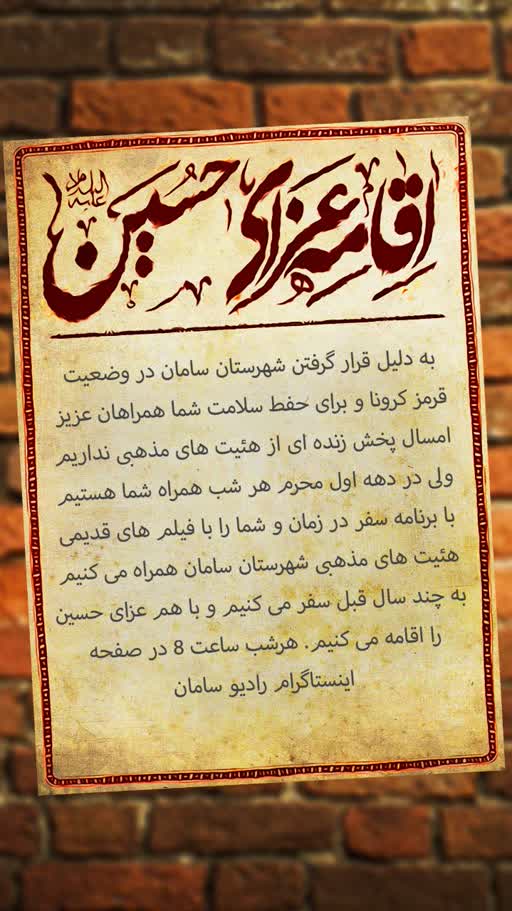 اقامه عزای حسین علیه السلام
به دلیل قرار گرفتن شهرستان سامان در وضعیت
قرمز کرونا و برای حفظ سلامت شما همراهان عزیز
امسال پخش زنده ای از هئیت های مذهبی نداریم
ولی در دهه اول محرم هر شب همراه شما هستیم
با برنامه سفر در زمان و شما را با فیلم های قدیمی
هئیت های مذهبی شهرستان سامان همراه می کنیم
به چند سال قبل سفر می کنیم و با هم عزای حسین
را اقامه می کنیم. هرشب ساعت 8 در صفحه
اینستاگرام رادیو سامان